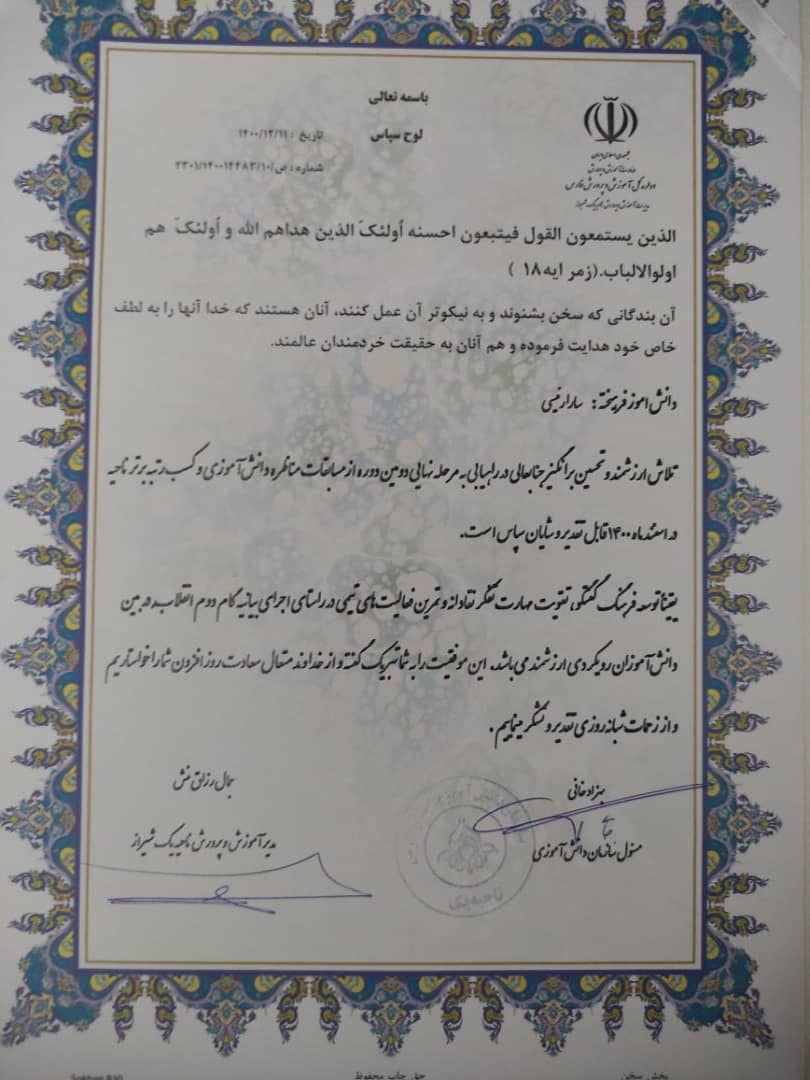 باسمه تعالی
لوح سپاس
تاریخ : ۱۴۰۰/۱۲/۱۱
شماره : ص/۲۳۰۱/۱۴۰۰۱۴۴۸۳/۱۰
جمهوری اسلامی ایران
وزارت آموزش و پرورش
اداره کل آموزش و پرورش فارس
مدیریت آموزش و پرورش ناحیه یک شیراز
الذین یستمعون القول فیتبعون احسنه أولئکَ الذین هداهم الله و أولئکَ هم
اولوالالباب.(زمر ایه۱۸ )
آن بندگانی که سخن بشنوند و به نیکوتر آن عمل کنند، آنان هستند که خدا آنها را به لطف
خاص خود هدایت فرموده و هم آنان به حقیقت خردمندان عالمند.
دانش اموز فرهیخته : سارا رئیسی
تلاش ارزشمند و تحسین برانگیز جنابعالی در راهیابی به مرحله نهایی دومین دوره از مسابقات مناظره دانش آموزی و کسب رتبه برتر ناحیه
در اسفند ماه ۱۴۰۰ قابل تقدیر و شایان سپاس است.
یقیناً توسعه فرهنگ گفتگو، تقویت مهارت تفکر نقادانه و تمرین فعالیت های تیمی در راستای اجرای بیانیه گام دوم انقلاب، در بین
دانش آموزان رویکردی ارزشمند می باشد. این موفقیت را به شما تبریک گفته و از خداوند متعال سعادت روز افزون شما را خواستاریم
و از زحمات شبانه روزی تقدیر و تشکر مینماییم .
بهزاد خانی
مسئول سازمان دانش آموزی
جمال رزاق منش
مدیر آموزش و پرورش ناحیه یک شیراز
ناحیه یک
پخش سخن
حق چاپ محفوظ